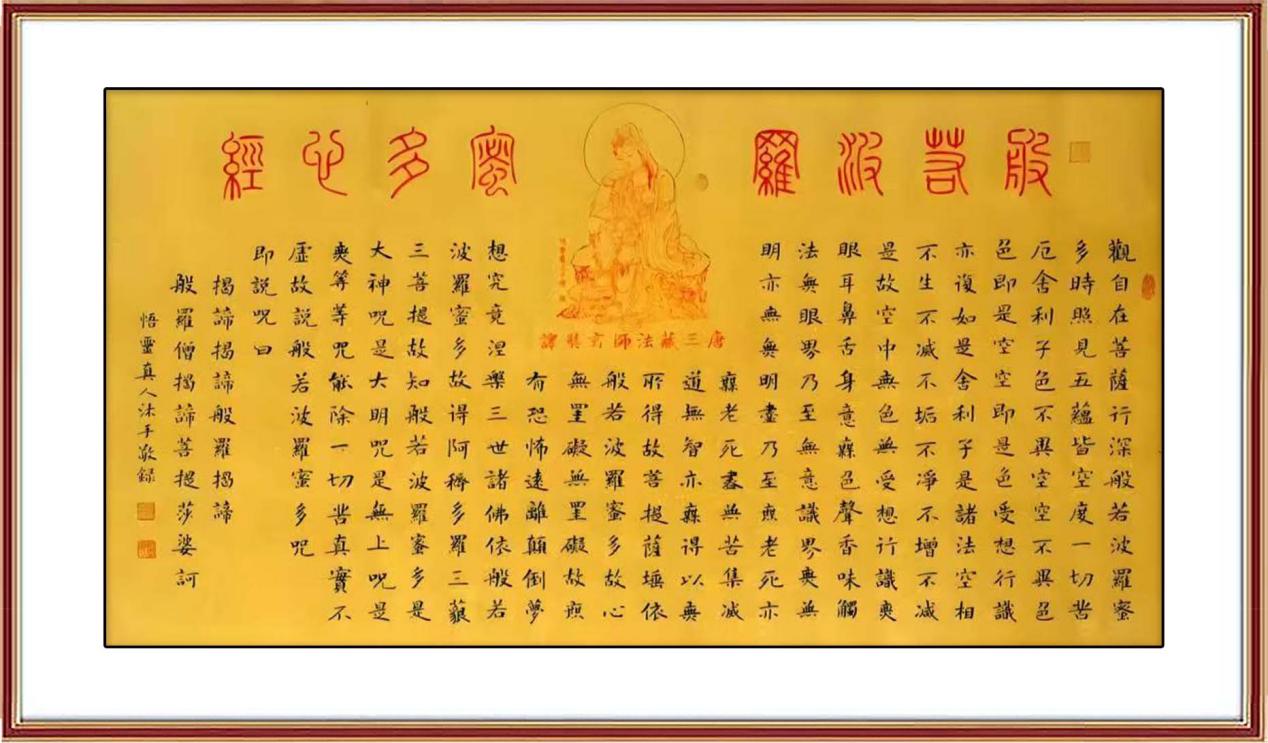 般若波羅蜜多心經
唐三藏法師玄奘譯
觀自在菩薩行深般若波羅蜜
多時照見五蘊皆空度一切苦
厄舍利子色不異空空不異色
色即是空空即是色受想行識
亦復如是舍利子是諸法空相
不生不滅不垢不淨不增不減
是故空中無色無受想行識無
眼耳鼻舌身意無色聲香味觸
法無眼界乃至無意識界無無
明亦無無明盡乃至無老死亦
無老死盡無苦集滅
道無智亦無得以無
所得故菩提薩埵依
般若波羅蜜多故心
無罣礙無罣礙故無
有恐怖遠離顛倒夢
想究竟涅槃三世諸佛依般若
波羅蜜多故得阿耨多羅三藐
三菩提故知般若波羅蜜多是
大神呪是大明呪是無上呪是
無等等呪能除一切苦真實不
虛故說般若波羅蜜多呪
即說呪曰
揭諦揭諦般羅揭諦
般羅僧揭諦菩提莎婆訶
悟靈真人沐手敬錄